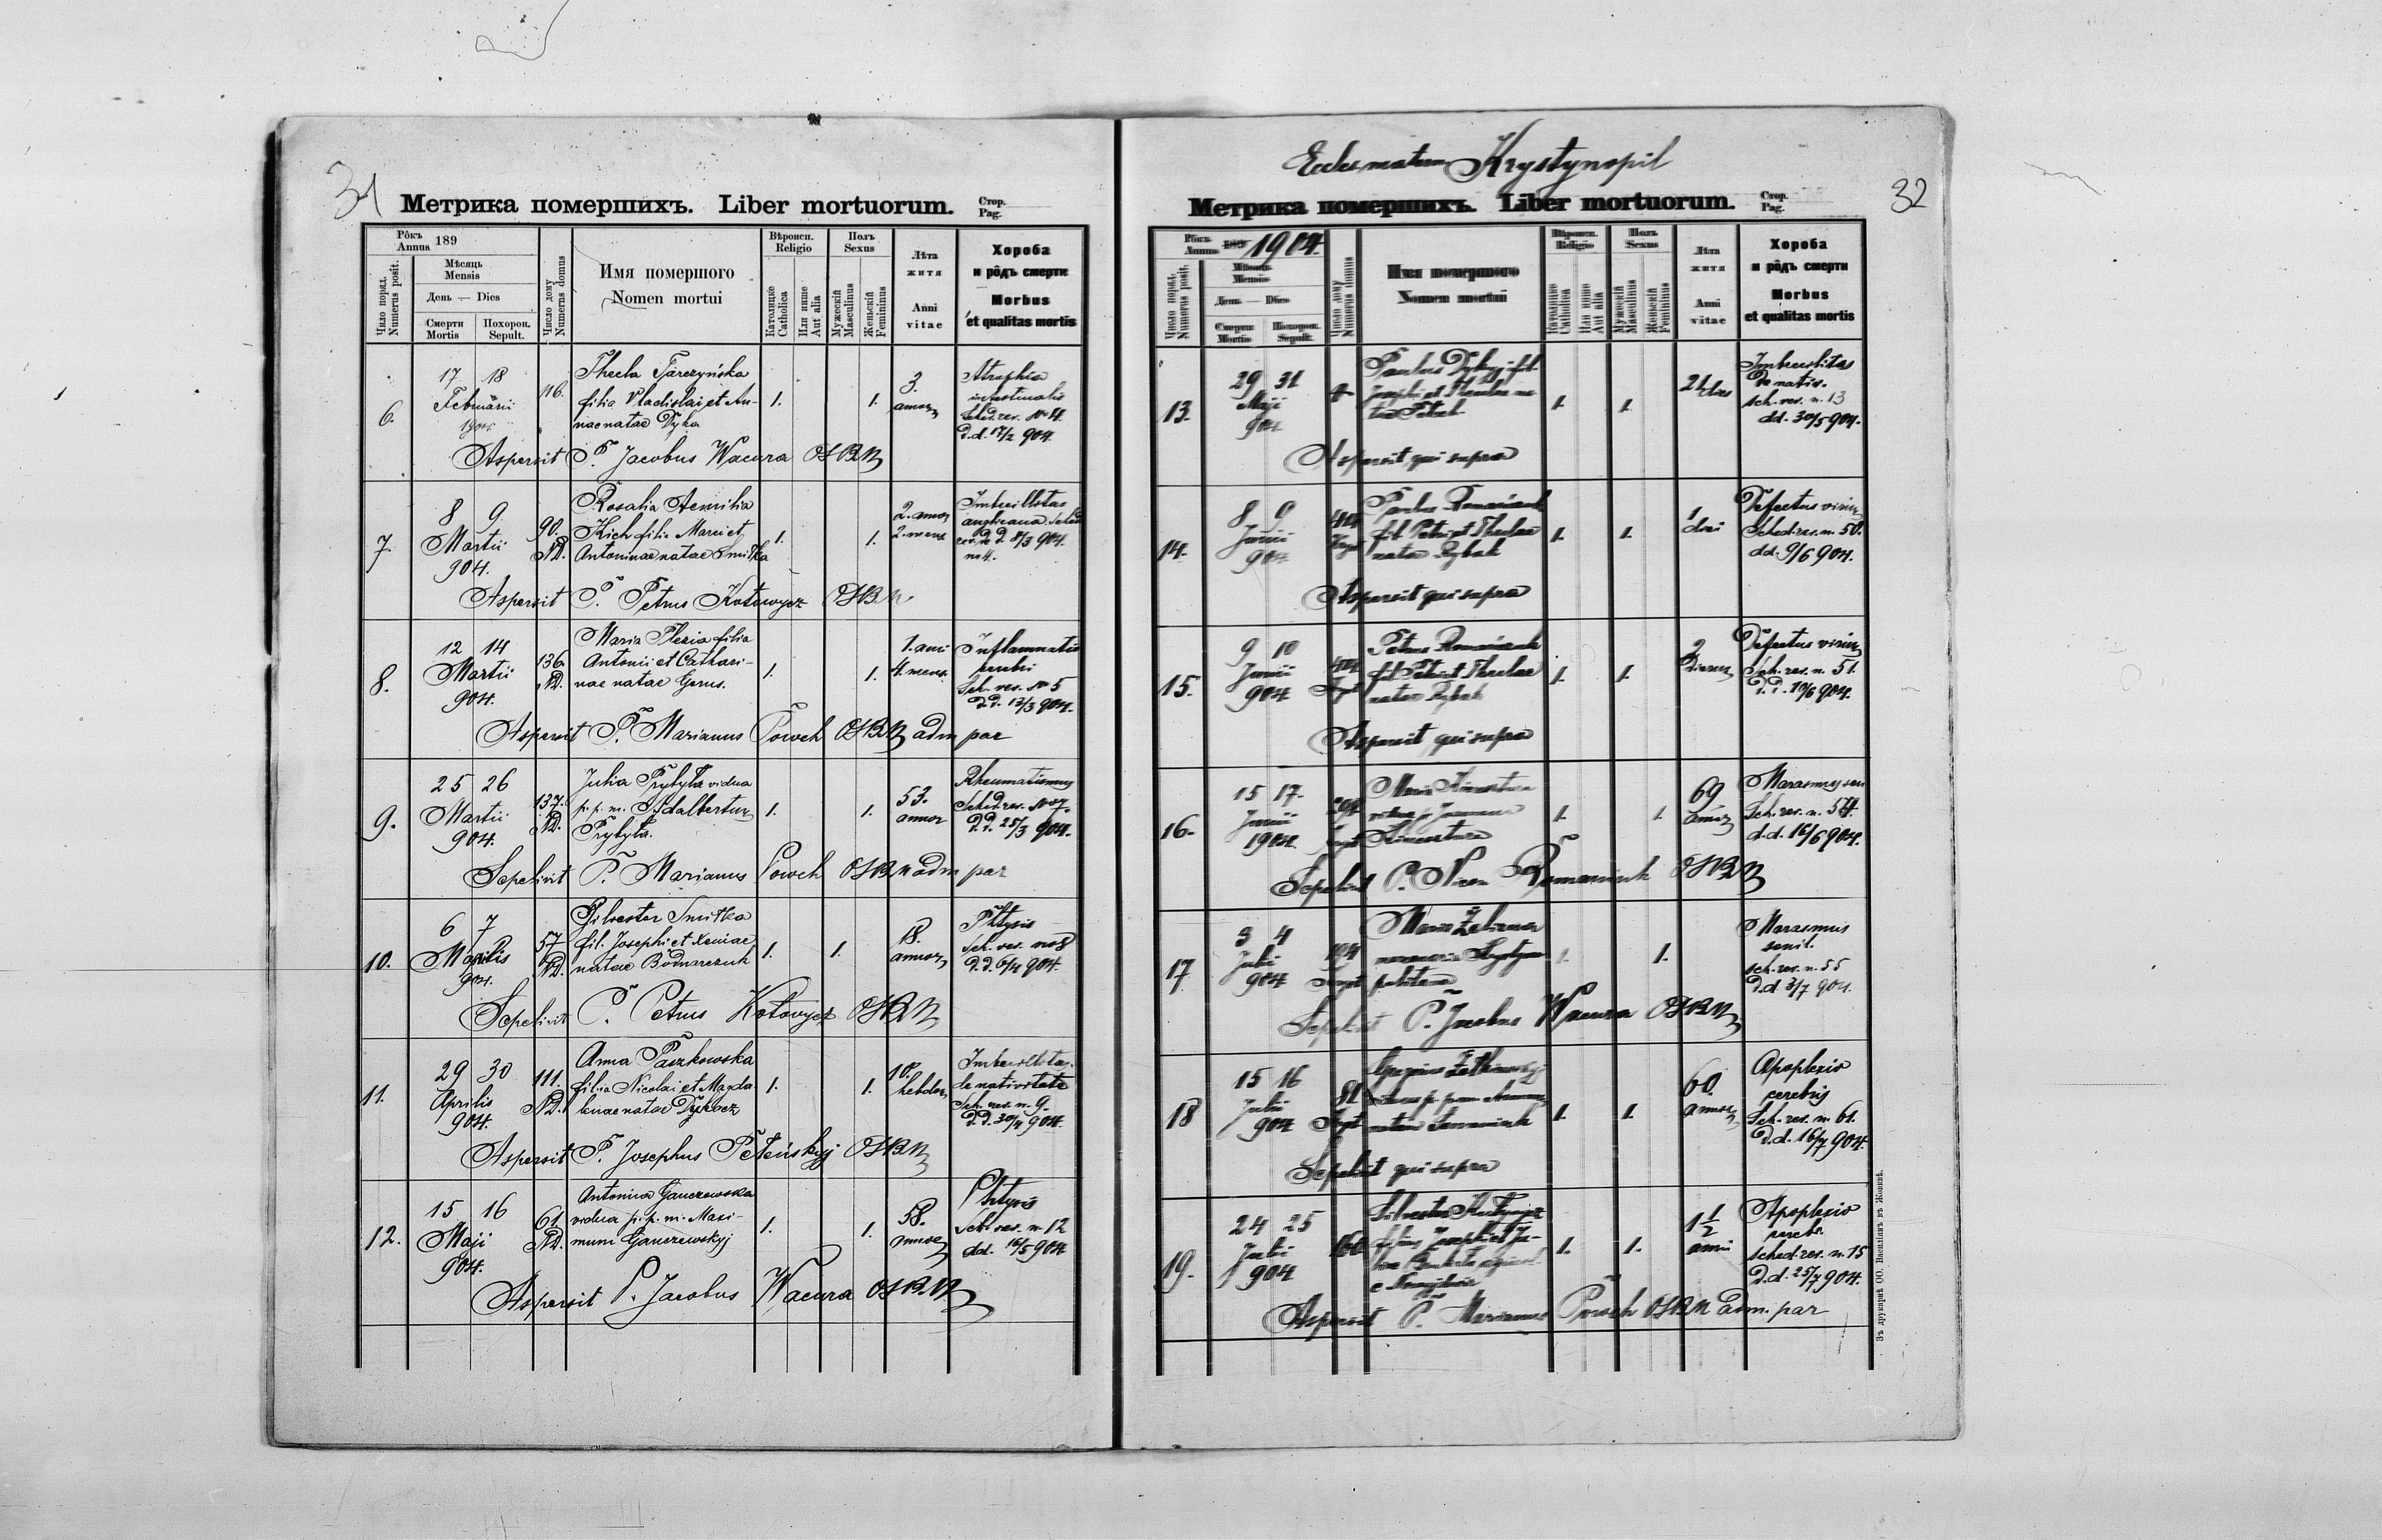 31
Метрика помершихъ. Liber mortuorum.
Стор.
Pag.
Рôкъ
Annus 189
Мѣсяць
Mensis
День — Dies
Смерти
Mortis
Похорон.
Sepult.
Число поряд.
Numerus posit.
Число дому
Numerus domus
Имя помершого
Nomen mortui
Вѣроисп.
Religio
Католицке
Catholica
Или инше
Aut alia
Полъ
Sexus
Мужескій
Masculinus
Женьскій
Femininus
Лѣта
житя
Anni
vitae
Хороба
и рôдъ смерти
Morbus
et qualitas mortis
6.
17 18
Februarii
1904
116.
Thecla Tarczyńska
filia Vladislai et An-
nae natae Dyka
1.
1.
3.
annor
Atrophia
intestinalis
Sched. res. No 4.
d.d. 17/2 904.
Aspersit P. Jacobus Wacura OSBM
7.
8 9
Martii
904.
90.
ND.
Rosalia Aemilia
Kich filia Marci et
Antoninae natae Smitka
1.
1.
2. annor
2. mens
Imbecillitas
d.d. 8/3 904.
no 4.
Aspersit P. Petrus Kotowycz OSBM
8.
12 14
Martii
904.
136.
ND.
Maria filia
Antonii et Cathari-
nae natae Gerus.
1.
1.
1. ani
4. mens.
Inflammatio
cerebri
Sch. res. No 5
d.d. 13/3 904.
Aspersit P. Marianus Powch OSBM adm par
9.
25 26
Martii
904.
137.
ND.
Julia Prybyła vidua
p. p. m. Adalbertum
Prybyła.
1.
1.
53.
annor
Rheumatismus
Sched. res. No 7.
d.d. 25/3 904.
Sepelivit P. Marianus Powch OSBM adm par
10.
6 7
Aprilis
904.
57
ND.
Silvester Smitka
fil. Josephi et Xeniae
natae Bodnarczuk
1.
1.
18.
annor
Phtysis
Sch. res. no 8
d.d. 6/4 904.
Sepelivit P. Petrus Kotowycz OSBM
11.
29 30
Aprilis
904.
111.
ND.
Anna Paszkowska
filia Nicolai et Magda
lenae natae Dykacz
1.
1.
10.
hebdom
Imbecillitas
de nativitate
Sch. res. n. 9.
d.d. 30/4 904.
Aspersit P. Josephus Peleńskyj OSBM
12.
15 16
Maji
904.
61
ND.
Antonina Ganczewska
vidua p. p. m. Maxi-
mum Ganczewskyj
1.
1.
58.
annor
Phtysis
Sch. res. n. 12
dd. 16/5 904
Aspersit P. Jacobus Wacura OSBM
Krystynopil
32
Метрика помершихъ. Liber mortuorum.
Стор.
Pag.
Рôкъ
Annus 1904.
Мѣсяць
Mensis
День — Dies
Смерти
Mortis
Похорон.
Sepult.
Число поряд.
Numerus posit.
Число дому
Numerus domus
Имя помершого
Nomen mortui
Вѣроисп.
Religio
Католицке
Catholica
Или инше
Aut alia
Полъ
Sexus
Мужескій
Masculinus
Женьскій
Femininus
Лѣта
житя
Anni
vitae
Хороба
и рôдъ смерти
Morbus
et qualitas mortis
13.
29 31
Maji
904.
4
Paulus Dykyj fil.
Josephi et Theclae na-
tae
1.
1.
Imbecilitas
de nativ.
sch. res. n. 13
dd. 30/5 904.
Aspersit qui supra
14.
8 9
Junii
904
Paulus Romaniuk
fil. Petri et Theclae
natae Rybak
1.
1.
1
diei
Defectus virium
Sched. res. n. 50.
dd. 9/6 904.
Aspersit qui supra
15.
9 10
Junii
904
Petrus Romaniuk
fil. Petri et Theclae
natae Rybak
1.
1.
2
dierum
Defectus virium
Sch. res. n. 51.
d.d. 10/6 904.
Aspersit qui supra
16.
15 17.
Junii
1904.
Maria
vidua p. Joannem
1.
1.
69
annor
Marasmus sen
Sch. res. n. 54.
d.d. 16/6 904.
Sepelivit P. Romaniuk OSBM
17
3 4
Julii
904
Maria
1.
1.
Marasmus
senil.
sch. res. n. 55
d.d 3/7 904.
Sepelivit P. Jacobus Wacura OSBM
18
15 16
Julii
904
81
natam
1.
1.
60.
annor
Apoplexio
cerebri
Sch. res. n. 61.
d.d. 16/7 904.
Sepelivit qui supra
19.
24 25
Julii
904
160
Silvester
filius Josephi et Ju-
1.
1.
1 1/2
anni
Apoplexio
cerebr.
sched. res. n. 15
d.d. 25/7 904.
Aspersit P. Marianus Powch OSBM adm. par
Зъ друкарнѣ ОО. Василіянъ въ Жовквѣ.